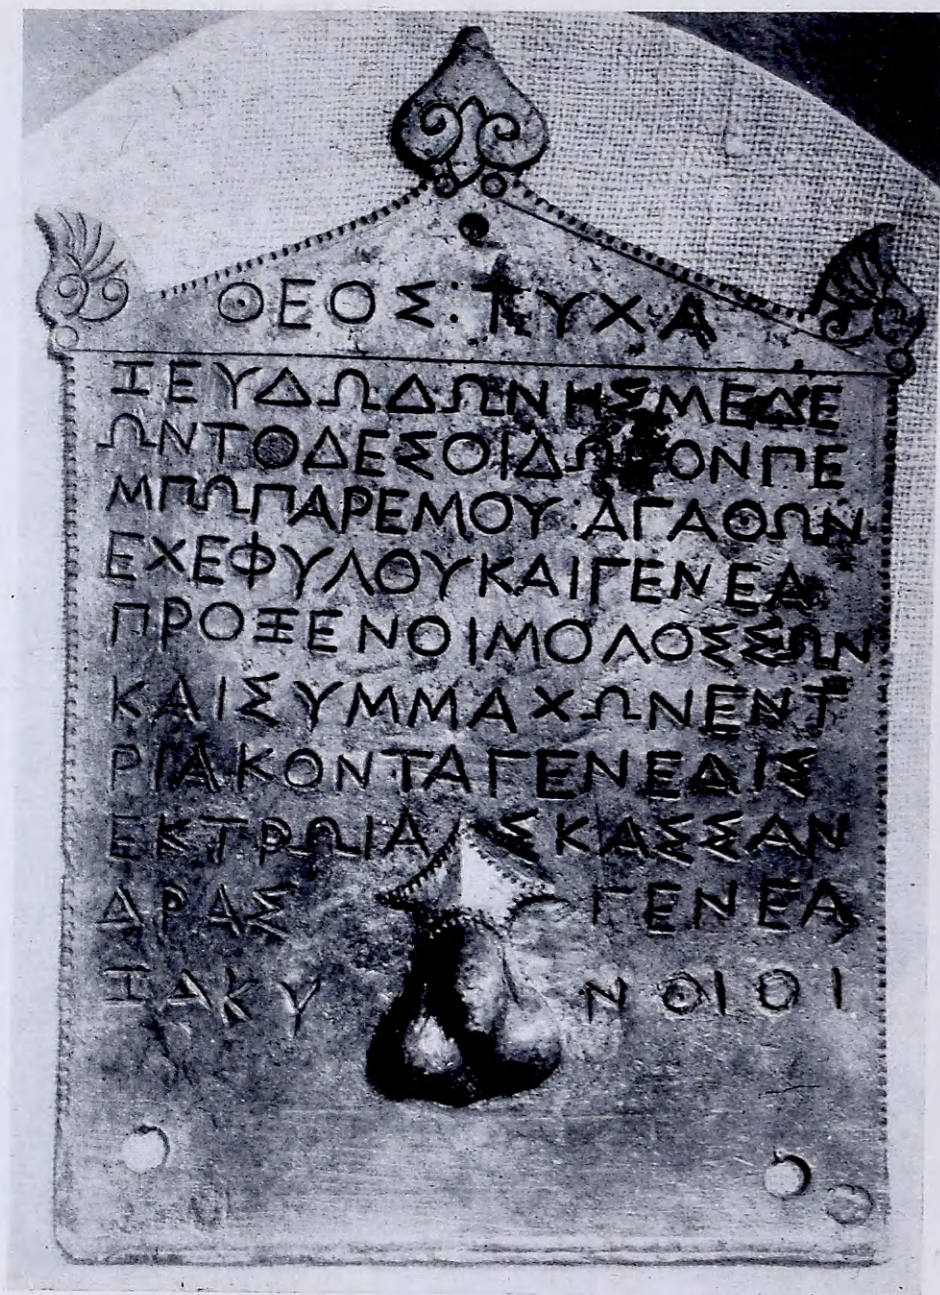 ΘΕΟΣ : ΤΥΧΑ
ΙΕΥΔΩΔΩΝΗΣΜΕΔΕ
ΩΝΤΟΔΕΣΟΙΔΩΡΟΝΠΕ
ΜΠΩΠΑΡΕΜΟΥ : ΑΓΑΘΩΝ
ΕΧΕΦΥΛΟΥΚΑΙΓΕΝΕΑ
ΠΡΟΞΕΝΟΙΜΟΛΟΣΣΩΝ
ΚΑΙΣΥΜΜΑΧΩΝΕΝΤ
ΡΙΑΚΟΝΤΑΓΕΝΕΑΙΣ
ΕΚΤΡΩΙΑΣΚΑΣΣΑΝ
ΔΡΑΣ ΓΕΝΕΑ
ΖΑΚΥΝΘΙΟΙ